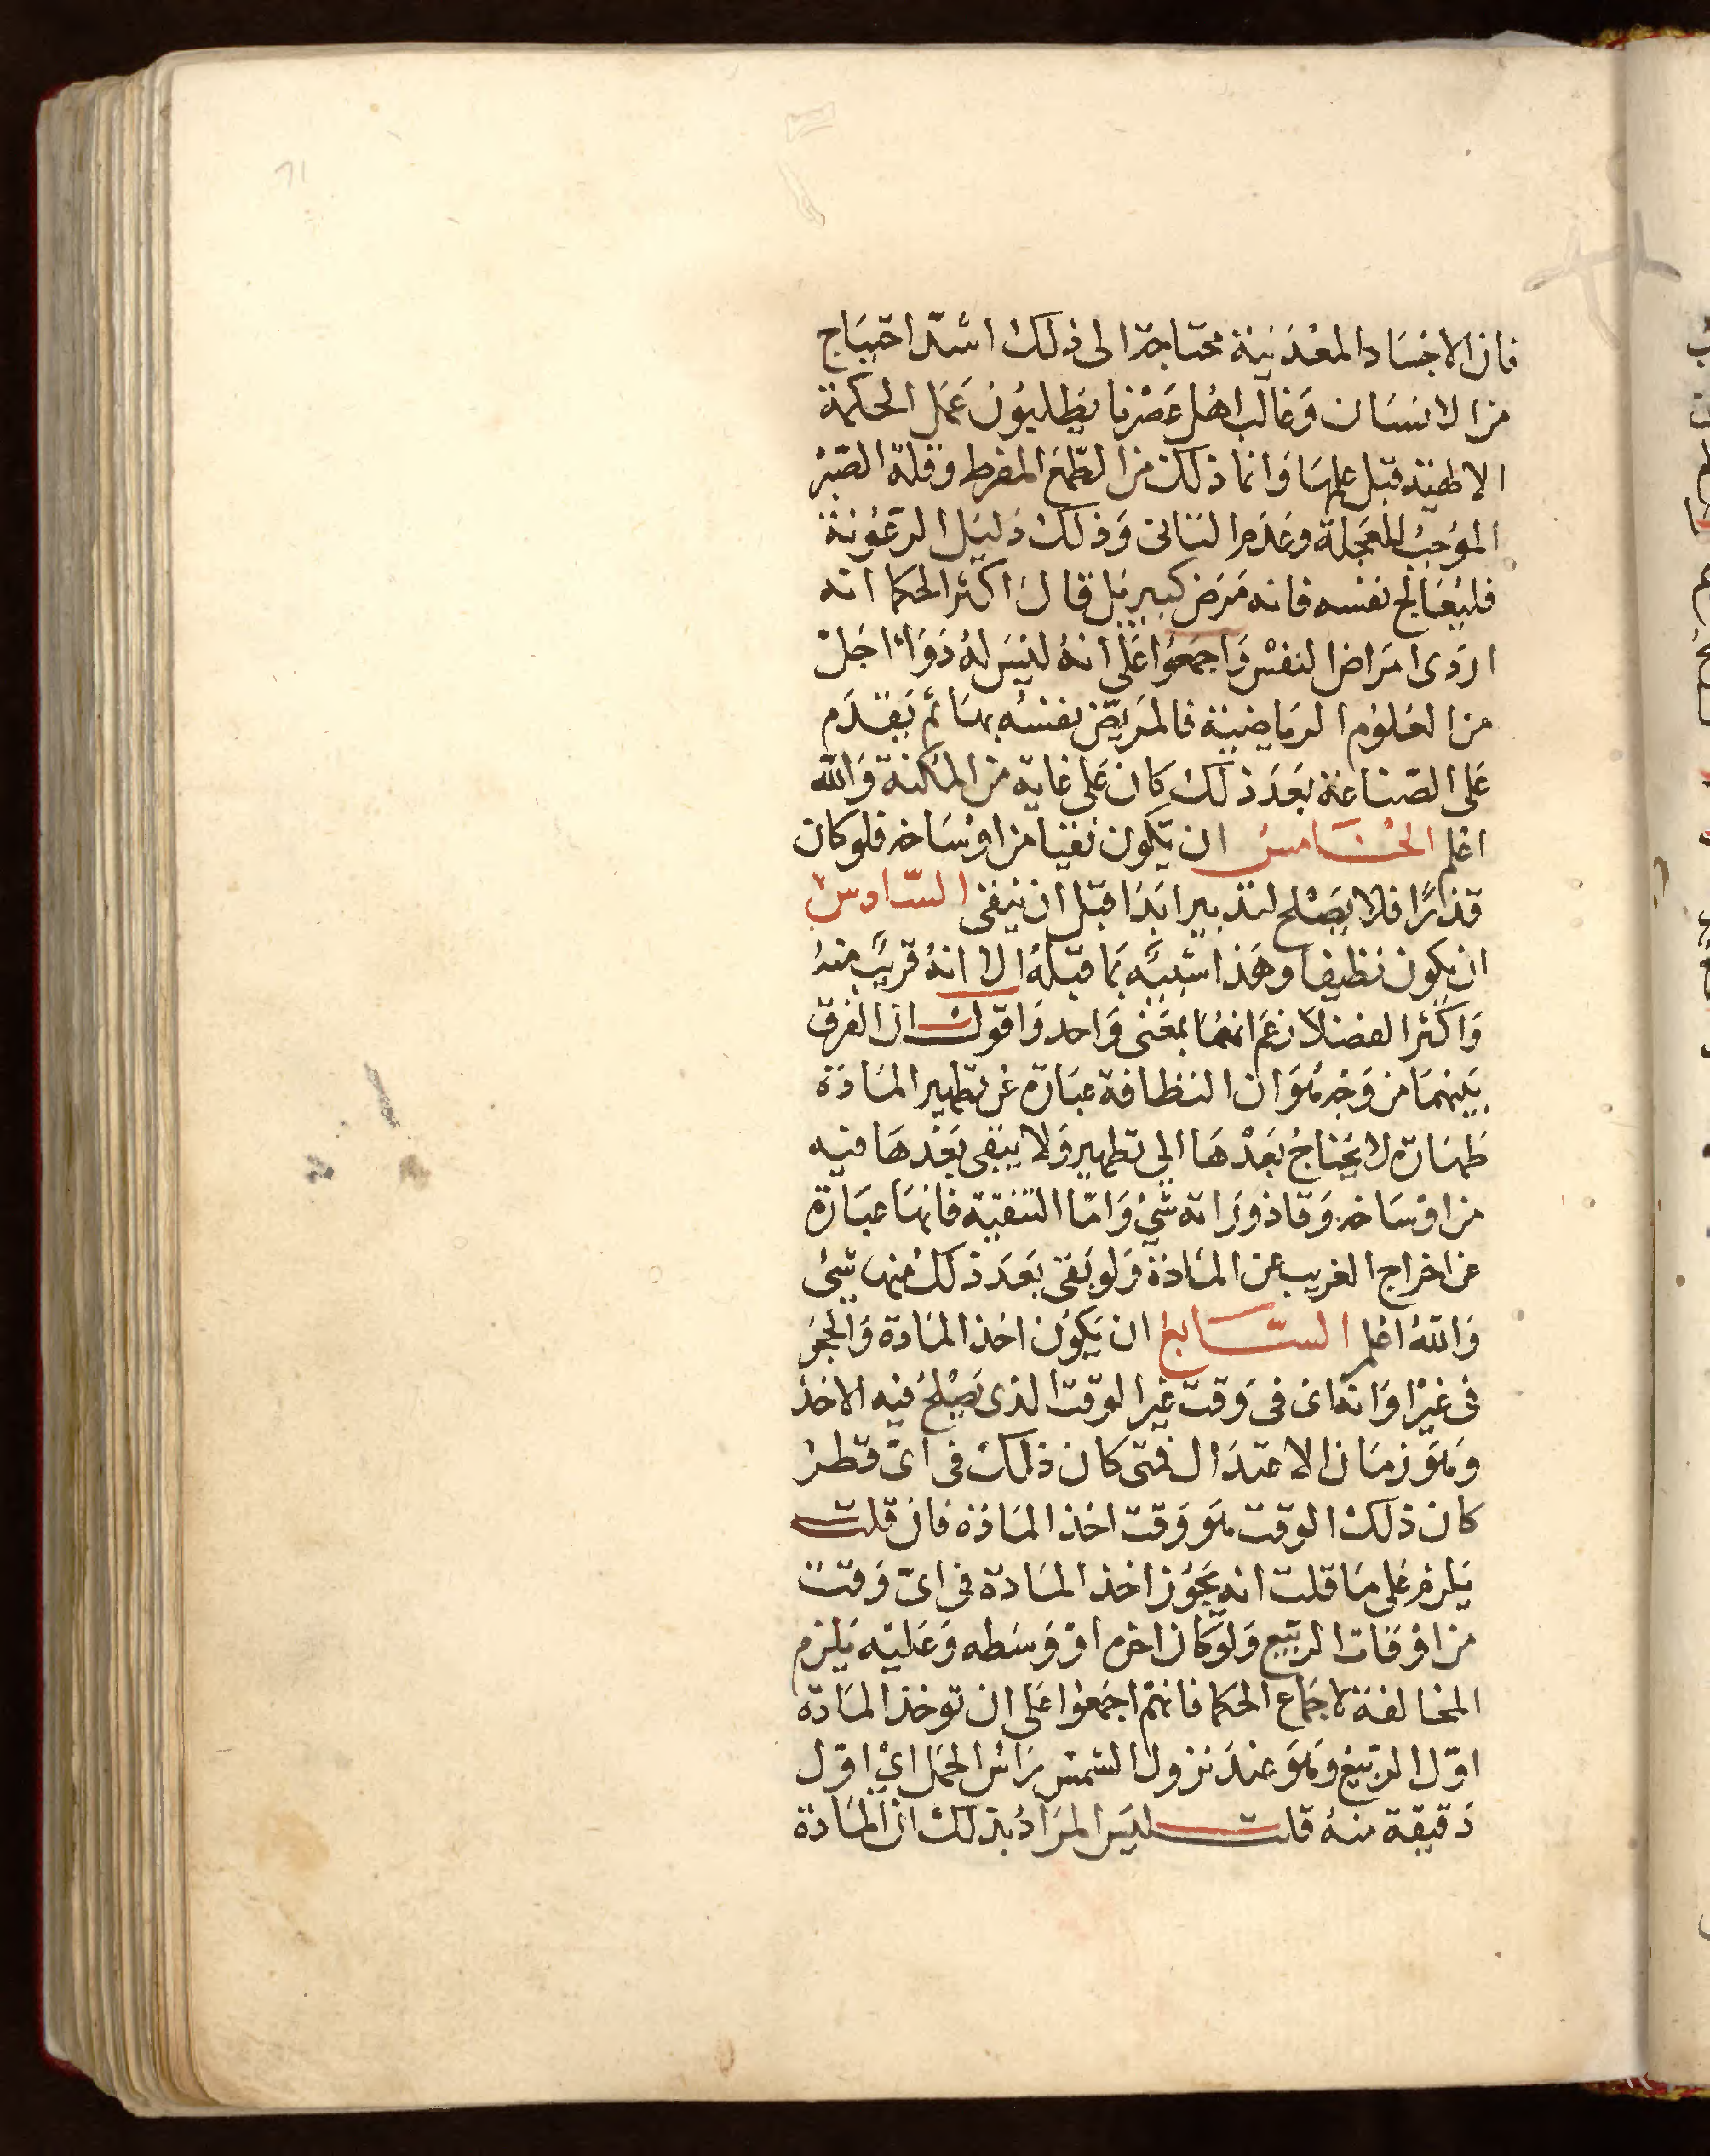 فان الاجساد المعدنية محتاجة الى ذلك اشد احتياج
من الانسان وغالب اهل عصرنا يطلبون عمل الحكمة
الالهية قبل علمها وانما ذلك من الطمع المفرط وقلة الصبر
الموجب للعجلة وعدم التانى وذلك دليل الرعونة
فليعالج نفسه فانه مرض كبير بل قال اكثر الحكما انه
اردى امراض النفس واجمعوا على انه ليس له دواء اجل
من العلوم الرياضية فالمريض نفسه بها ثم يقدم
على الصناعة بعد ذلك كان على غاية من المكنة والله
اعلم الخامس ان يكون نقيا من اوساخه فلو كان
قذارًا فلا يصلح لتدبير ابدا قبل ان ينقى السادس
ان يكون نظيفا وهذا شبيه بما قبله الا انه قريب منه
واكثر الفضلا زعم انهما بمعنى واحد واقول ان الفرق
بينهما من وجه هو ان النظافة عبارة عن تطهير المادة
طهارة لا يحتاج بعدها الى تطهير ولا يبقى بعدها فيه
من اوساخه وقاذوراته شئ واما التنقية فانها عبارة
عن اخراج الغريب عن المادة ولو بقى بعد ذلك منها شئ
والله اعلم السابع ان يكون اخذ المادة والحجر
فى غير اوانه اى فى وقت غير الوقت الذى يصلح فيه الاخذ
وهو زمان الاعتدال فمتى كان ذلك فى اى قطر
كان ذلك الوقت هو وقت اخذ المادة فان قلت
يلزم على ما قلت انه يجوز اخذ المادة فى اى وقت
من اوقات الربيع ولو كان اخره او وسطه وعليه يلزم
المخالفة لاجماع الحكما فانهم اجمعوا على ان توخذ المادة
اول الربيع وهو عند نزول الشمس براس الحمل اى اول
دقيقة منه قلت ليس المراد بذلك ان المادة